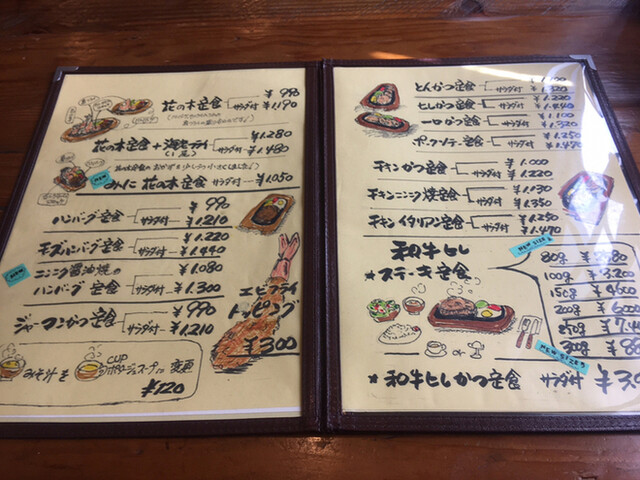 花の木定食 ¥990
サラダ付 ¥1.190
花の木定食+海老フライ ¥1.280
(1尾) サラダ付 ¥1.480
NEW
みに 花の木定食 サラダ付 ¥1.050
ハンバーグ定食 ¥990
サラダ付 ¥1.210
チーズハンバーグ定食 ¥1.220
サラダ付 ¥1.440
NEW
ニンニク醤油焼の ¥1.080
ハンバーグ定食 サラダ付 ¥1.300
ジャーマンかつ定食 ¥990
サラダ付 ¥1210
エビフライ
トッピング
¥300
みそ汁を CUP スープに変更
¥120
とんかつ定食
サラダ付 ¥1.320
ヒレかつ定食 ¥1.220
サラダ付 ¥1.440
一口かつ定食 ¥1.100
サラダ付 ¥1.320
ポークソテー定食 ¥1.250
サラダ付 ¥1.470
チキンかつ定食 ¥1.000
サラダ付 ¥1.220
チキンニンニク焼定食 ¥1.130
サラダ付 ¥1.350
チキンイタリアン定食 ¥1.250
サラダ付 ¥1.470
NEW SIZE
★和牛ヒレ
ステーキ定食
80g
100g ¥3.200
150g ¥4.600
200g ¥6.000
250g
300g
or
NEW SIZE
★和牛ヒレかつ定食 サラダ付